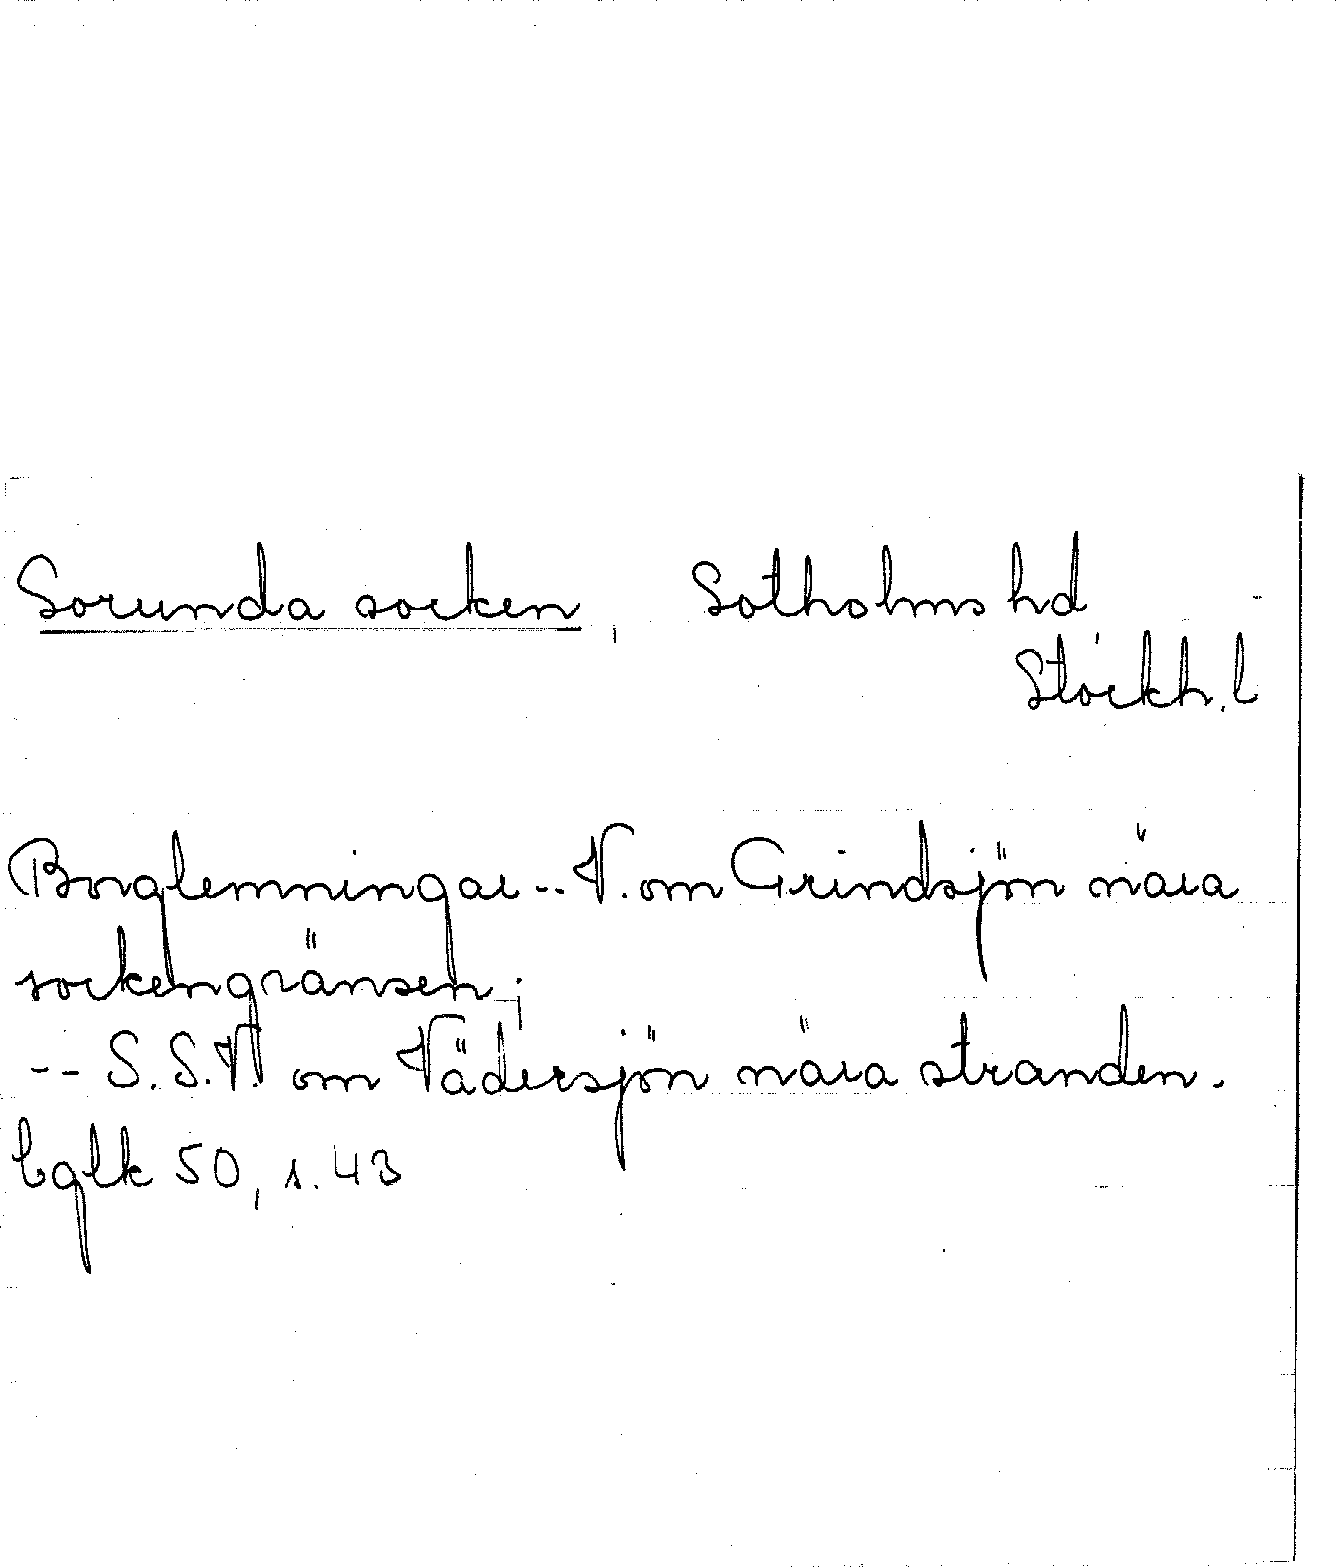 Sorunda socken, Sotholms hd
Stockh. l
Borglemningar -- V. om Grindsjön nära
sockengränsen;
-- S.S.V. om Vädersjön nära stranden.
bglk 50, s. 43